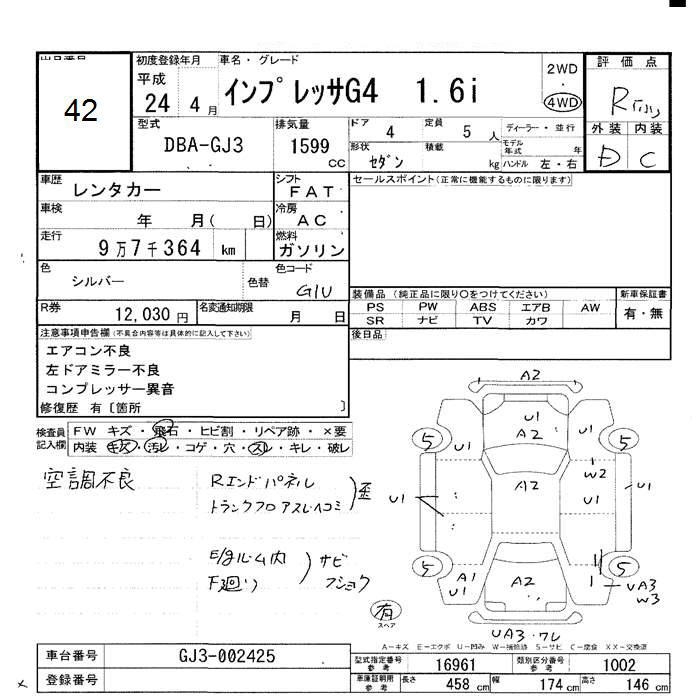 出品番号
42
初度登録年月
平成
24年 4月
車名・グレード
インプレッサG4 1.6i
2WD
4WD
評価点
R
外装 内装
D C
型式
DBA-GJ3
排気量
1599 CC
ドア 4
定員 5人
形状 セダン
積載 kg
ディーラー・並行
モデル年式 年
ハンドル 左・右
車歴
レンタカー
シフト
FAT
セールスポイント(正常に機能するものに限ります)
車検
年 月( 日)
冷房
AC
走行
9万7千364 km
燃料
ガソリン
色
シルバー
色替
色コード
G1U
R券
12,030円
名変通知期限
月 日
装備品 (純正品に限り○をつけてください)
PS PW ABS エアB AW
SR ナビ TV カワ
新車保証書
有・無
後日品
注意事項申告欄(不具合内容等は具体的に記入して下さい)
エアコン不良
左ドアミラー不良
コンプレッサー異音
修復歴 有〔箇所 〕
検査員記入欄
FW キズ・飛石・ヒビ割・リペア跡・×要
内装 キズ・汚レ・コゲ・穴・スレ・キレ・破レ
空調不良
Rエンドパネル
トランクフロアスレヘコミ
歪
E/gルーム内
F廻り
サビ
フショク
A2
U1
A2
U1
U1
5
5
W2
U1
U1
A2
U1
5
5
A1
U1
A2
UA3
W3
UA3・ワレ
有
スペア
A-キズ E-エクボ U-凹み W-補修跡 S-サビ C-腐食 XX-交換済
車台番号
GJ3-002425
登録番号
型式指定番号 参考
16961
類別区分番号 参考
1002
車庫証明用 参考
長さ 458 cm
幅 174 cm
高さ 146 cm